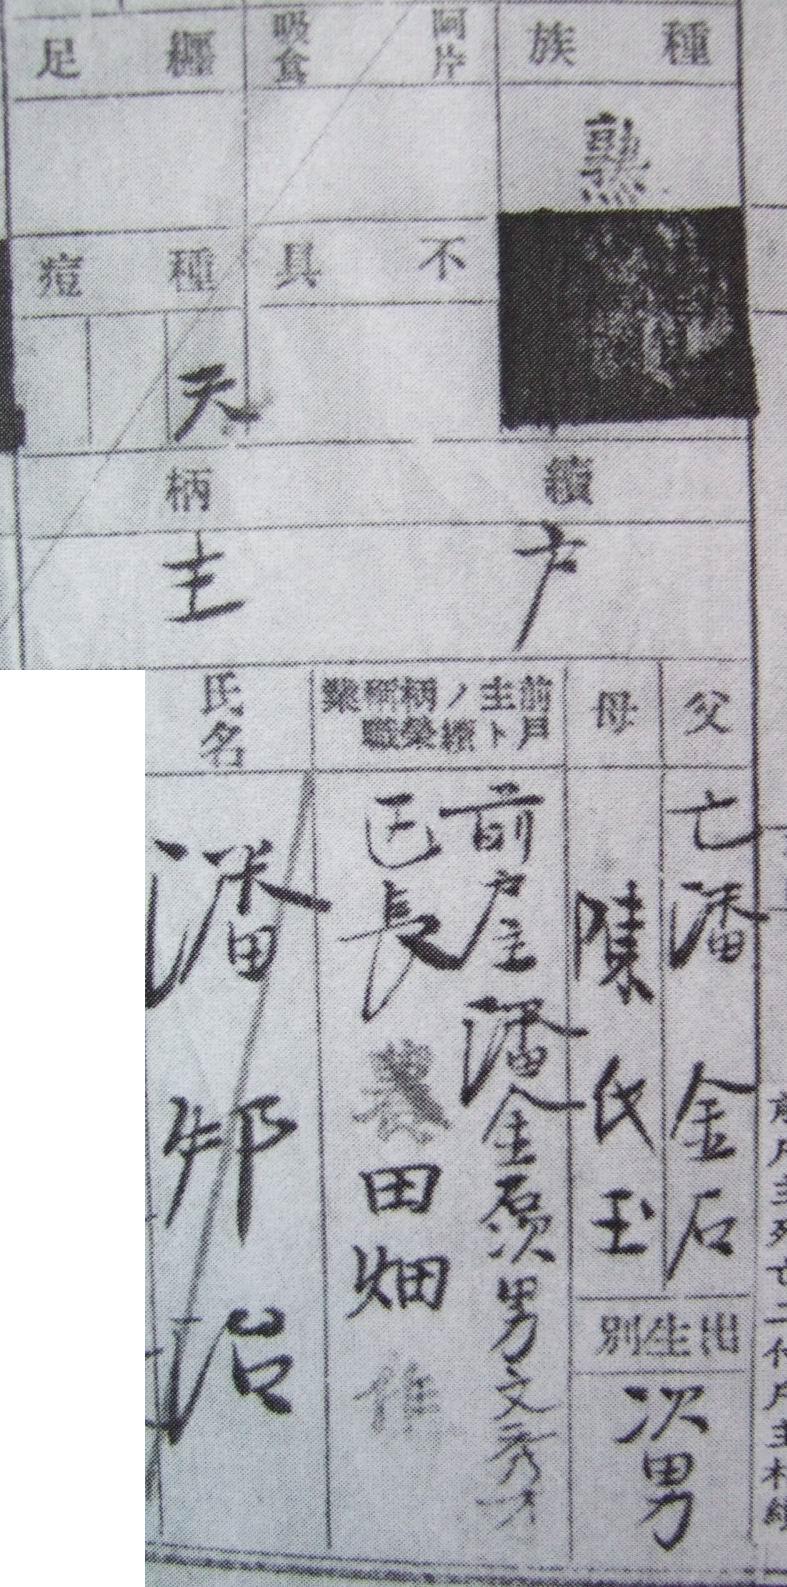 種族
熟
阿片吸食
纒足
不具
種痘
天
續柄
戶主
父
亡潘金石
母
陳氏玉
出生別
次男
前戶主トノ續柄榮稱職業
前戶主潘金石次男文秀才
區長
農
田畑
作
氏名
潘邦治
戶主死亡ニ付戶主相續